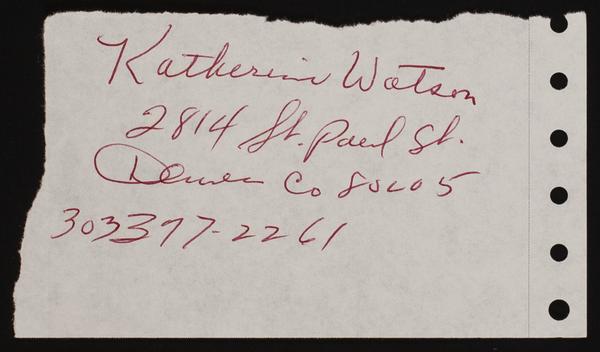 Katherine Watson
2814 St. Paul St.
Denver Co 80205
303377-2261